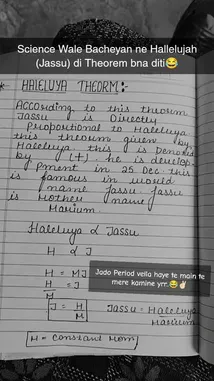 Science Wale Bacheyan ne Hallelujah
(Jassu) di Theorem bna diti😂
* HALELUYA THEORM:-
According to this theorem
Jassu is Directly
Proportional to Haleluya
this theorem given by
Haleluya this is Denoted
by (+). he is develop-
pment in 25 Dec. this
is famous in world
name Jassu. Jassu
is Mother name
Marium.
Haleluya ∝ Jassu
H ∝ J
H = MJ
Jado Period vella haye te main te
mere kamine yrr.😂✌🏻
H/M = J
J = H/M
Jassu = Haleluya/Marium
H = Constant Mom